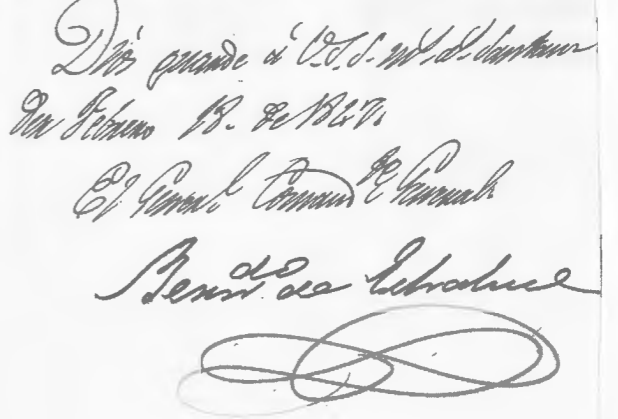 Dios guarde á V.S.S. ms. as. Santan
der Febrero 18. de 1847.
El General Comand.te General.
Bern.do de Echaluce